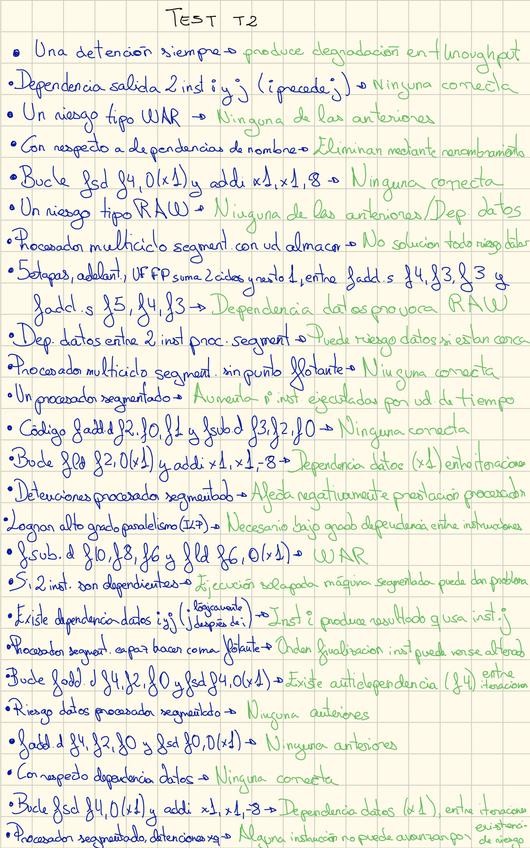 TEST T2
• Una detención siempre → produce degradación en throughput
• Dependencia salida 2 inst i y j (i precede j) → Ninguna correcta
• Un riesgo tipo WAR → Ninguna de las anteriores
• Con respecto a dependencias de nombre → Eliminan mediante renombramiento
• Bucle fsd f4, 0(x1) y addi x1, x1, 8 → Ninguna correcta
• Un riesgo tipo RAW → Ninguna de las anteriores/Dep datos
• Procesador multiciclo segment. con ud almacor → No solucion todo riesgo datos
• 5 etapas, adelant, UF FP suma 2 ciclos y resto 1, entre fadd.s f4, f3, f3 y
fadd.s f5, f4, f3 → Dependencia datos provoca RAW
• Dep. datos entre 2 inst proc. segment → Puede riesgo datos si estan cerca
• Procesador multiciclo segment. sin punto flotante → Ninguna correcta
• Un procesador segmentado → Aumenta nº inst ejecutadas por ud de tiempo
• Código fadd.d f2, f0, f1 y fsub.d f3, f2, f0 → Ninguna correcta
• Bucle fld f2, 0(x1) y addi x1, x1, -8 → Dependencia datos (x1) entre iteraciones
• Detenciones procesador segmentado → Afecta negativamente prestación procesador
• Lograr alto grado paralelismo (ILP) → Necesario bajo grado dependencia entre instrucciones
• fsub.d f10, f8, f6 y fld f6, 0(x1) → WAR
• Si 2 inst. son dependientes → Ejecución solapada máquina segmentada puede dar problema
• Existe dependencia datos i y j (j lógicamente después de i) → Inst i produce resultado q usa inst. j
• Procesador segment. capaz hacer coma flotante → Orden finalización inst puede verse alterado
• Bucle fadd.d f4, f2, f0 y fsd f4, 0(x1) → Existe antidependencia (f4) entre iteraciones
• Riesgo datos procesador segmentado → Ninguna anteriores
• fadd.d f4, f2, f0 y fsd f0, 0(x1) → Ninguna anteriores
• Con respecto dependencia datos → Ninguna correcta
• Bucle fsd f4, 0(x1) y addi x1, x1, -8 → Dependencia datos (x1), entre iteracione
• Procesador segmentado, detenciones xq → Alguna instrucción no puede avanzar por existencia de riesgo